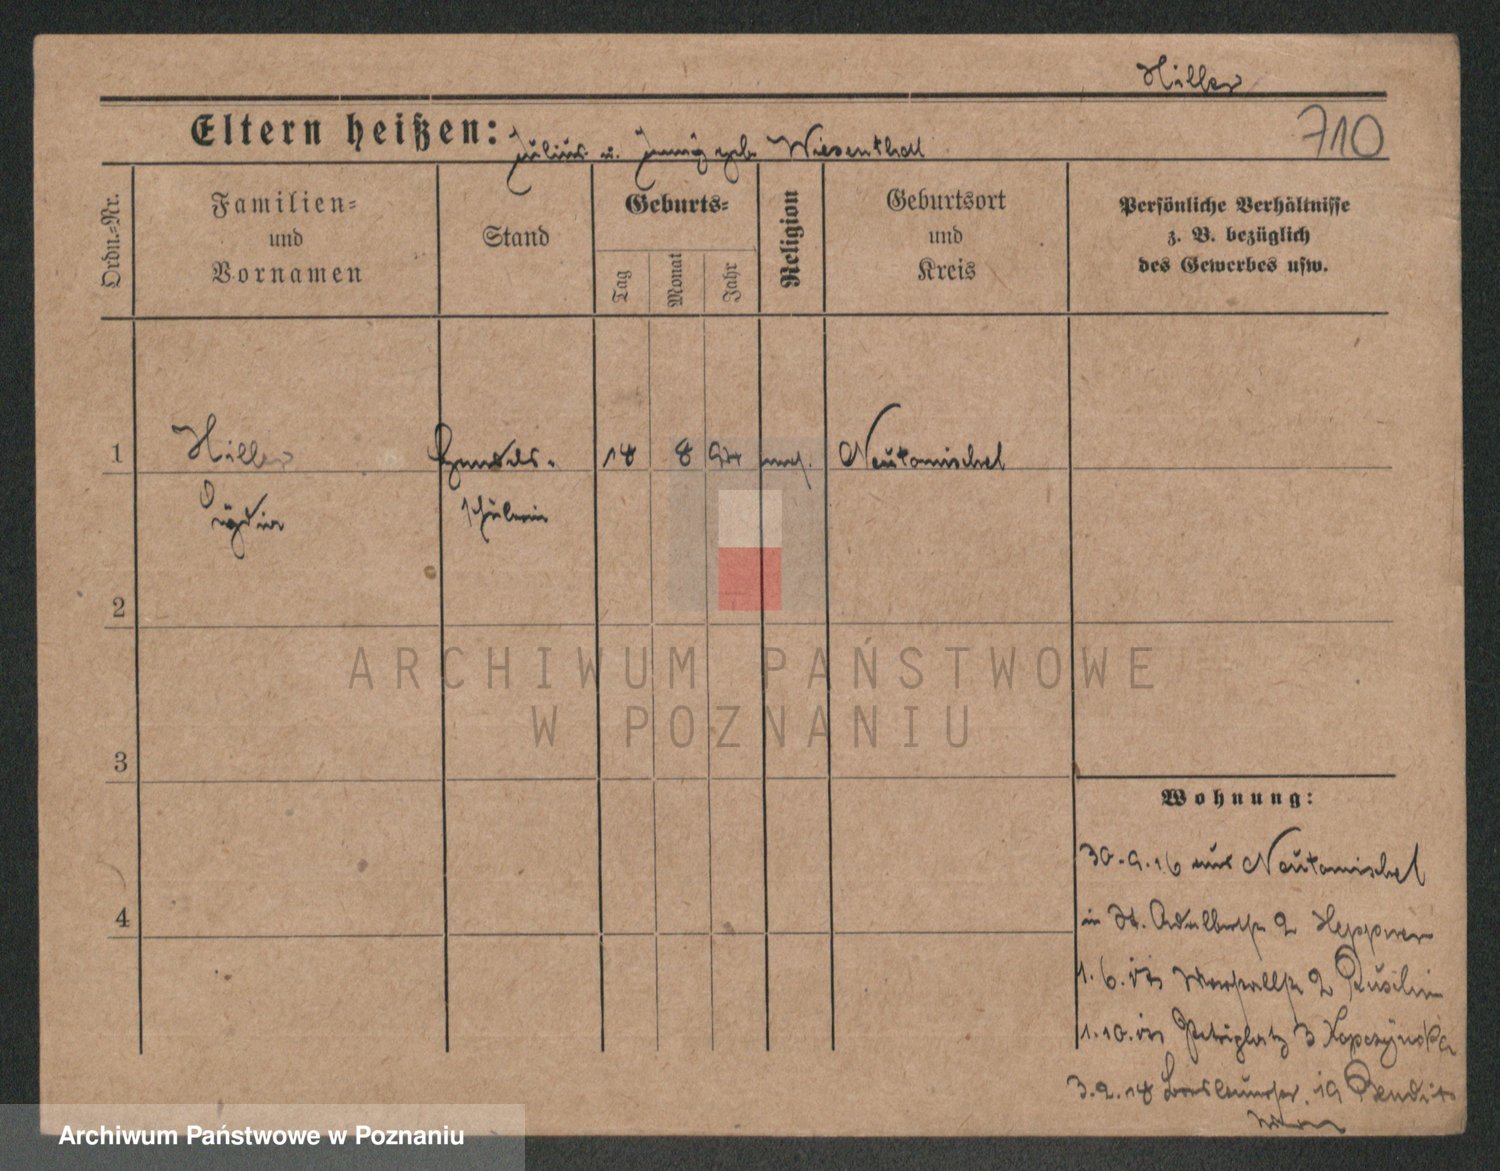 Hiller
710
Eltern heißen: Julius u. Jenny geb. Wiesenthal
Ordn.-Nr.
Familien-
und
Vornamen
Stand
Geburts-
Tag
Monat
Jahr
Religion
Geburtsort
und
Kreis
Persönliche Verhältnisse
z. B. bezüglich
des Gewerbes usw.
1 Hiller Handels- 18 8 mos. Neutomischel
schülerin
2
ARCHIWUM PAŃSTWOWE
W POZNANIU
3
Wohnung:
30.9.16 aus Neutomischel
4
in St. Adalbertstr 2 Heppner
1.6. in 2
1.10. in Petriplatz 3 Kopczynska
3.2.18 19
Archiwum Państwowe w Poznaniu